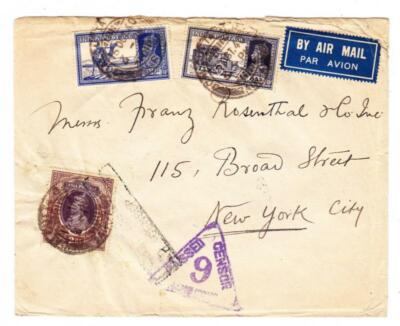 INDIA POSTAGE
INDIA POSTAGE
BY AIR MAIL
PAR AVION
Messrs. Franz Rosenthal & Co Inc
115, Broad Street
New York City
PASSED
CENSOR
9